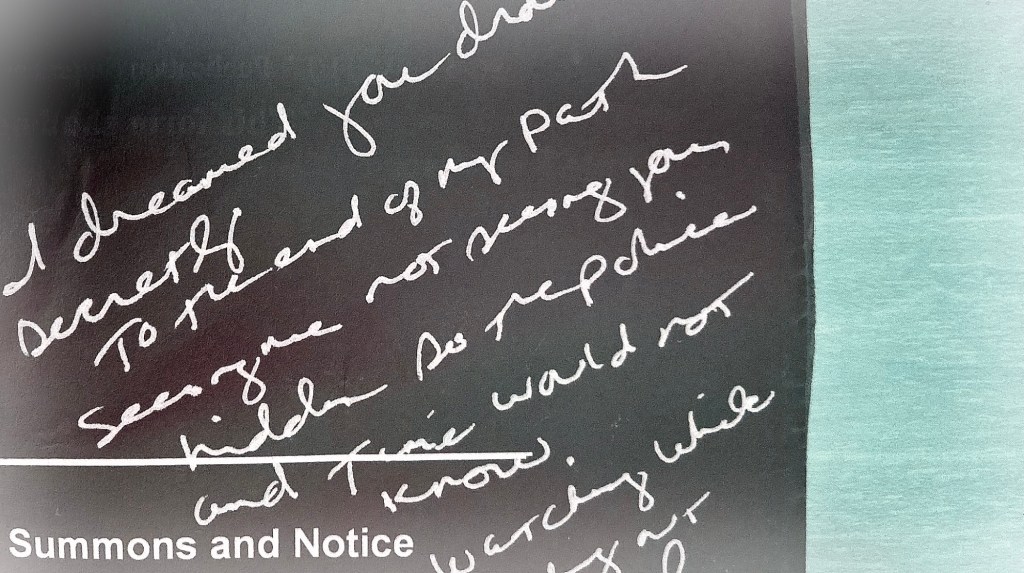 I dreamed you
secretly
To the end of my path
seeing me not seeing you,
hidden so the police
and Time would not
know.
watching while
Summons and Notice